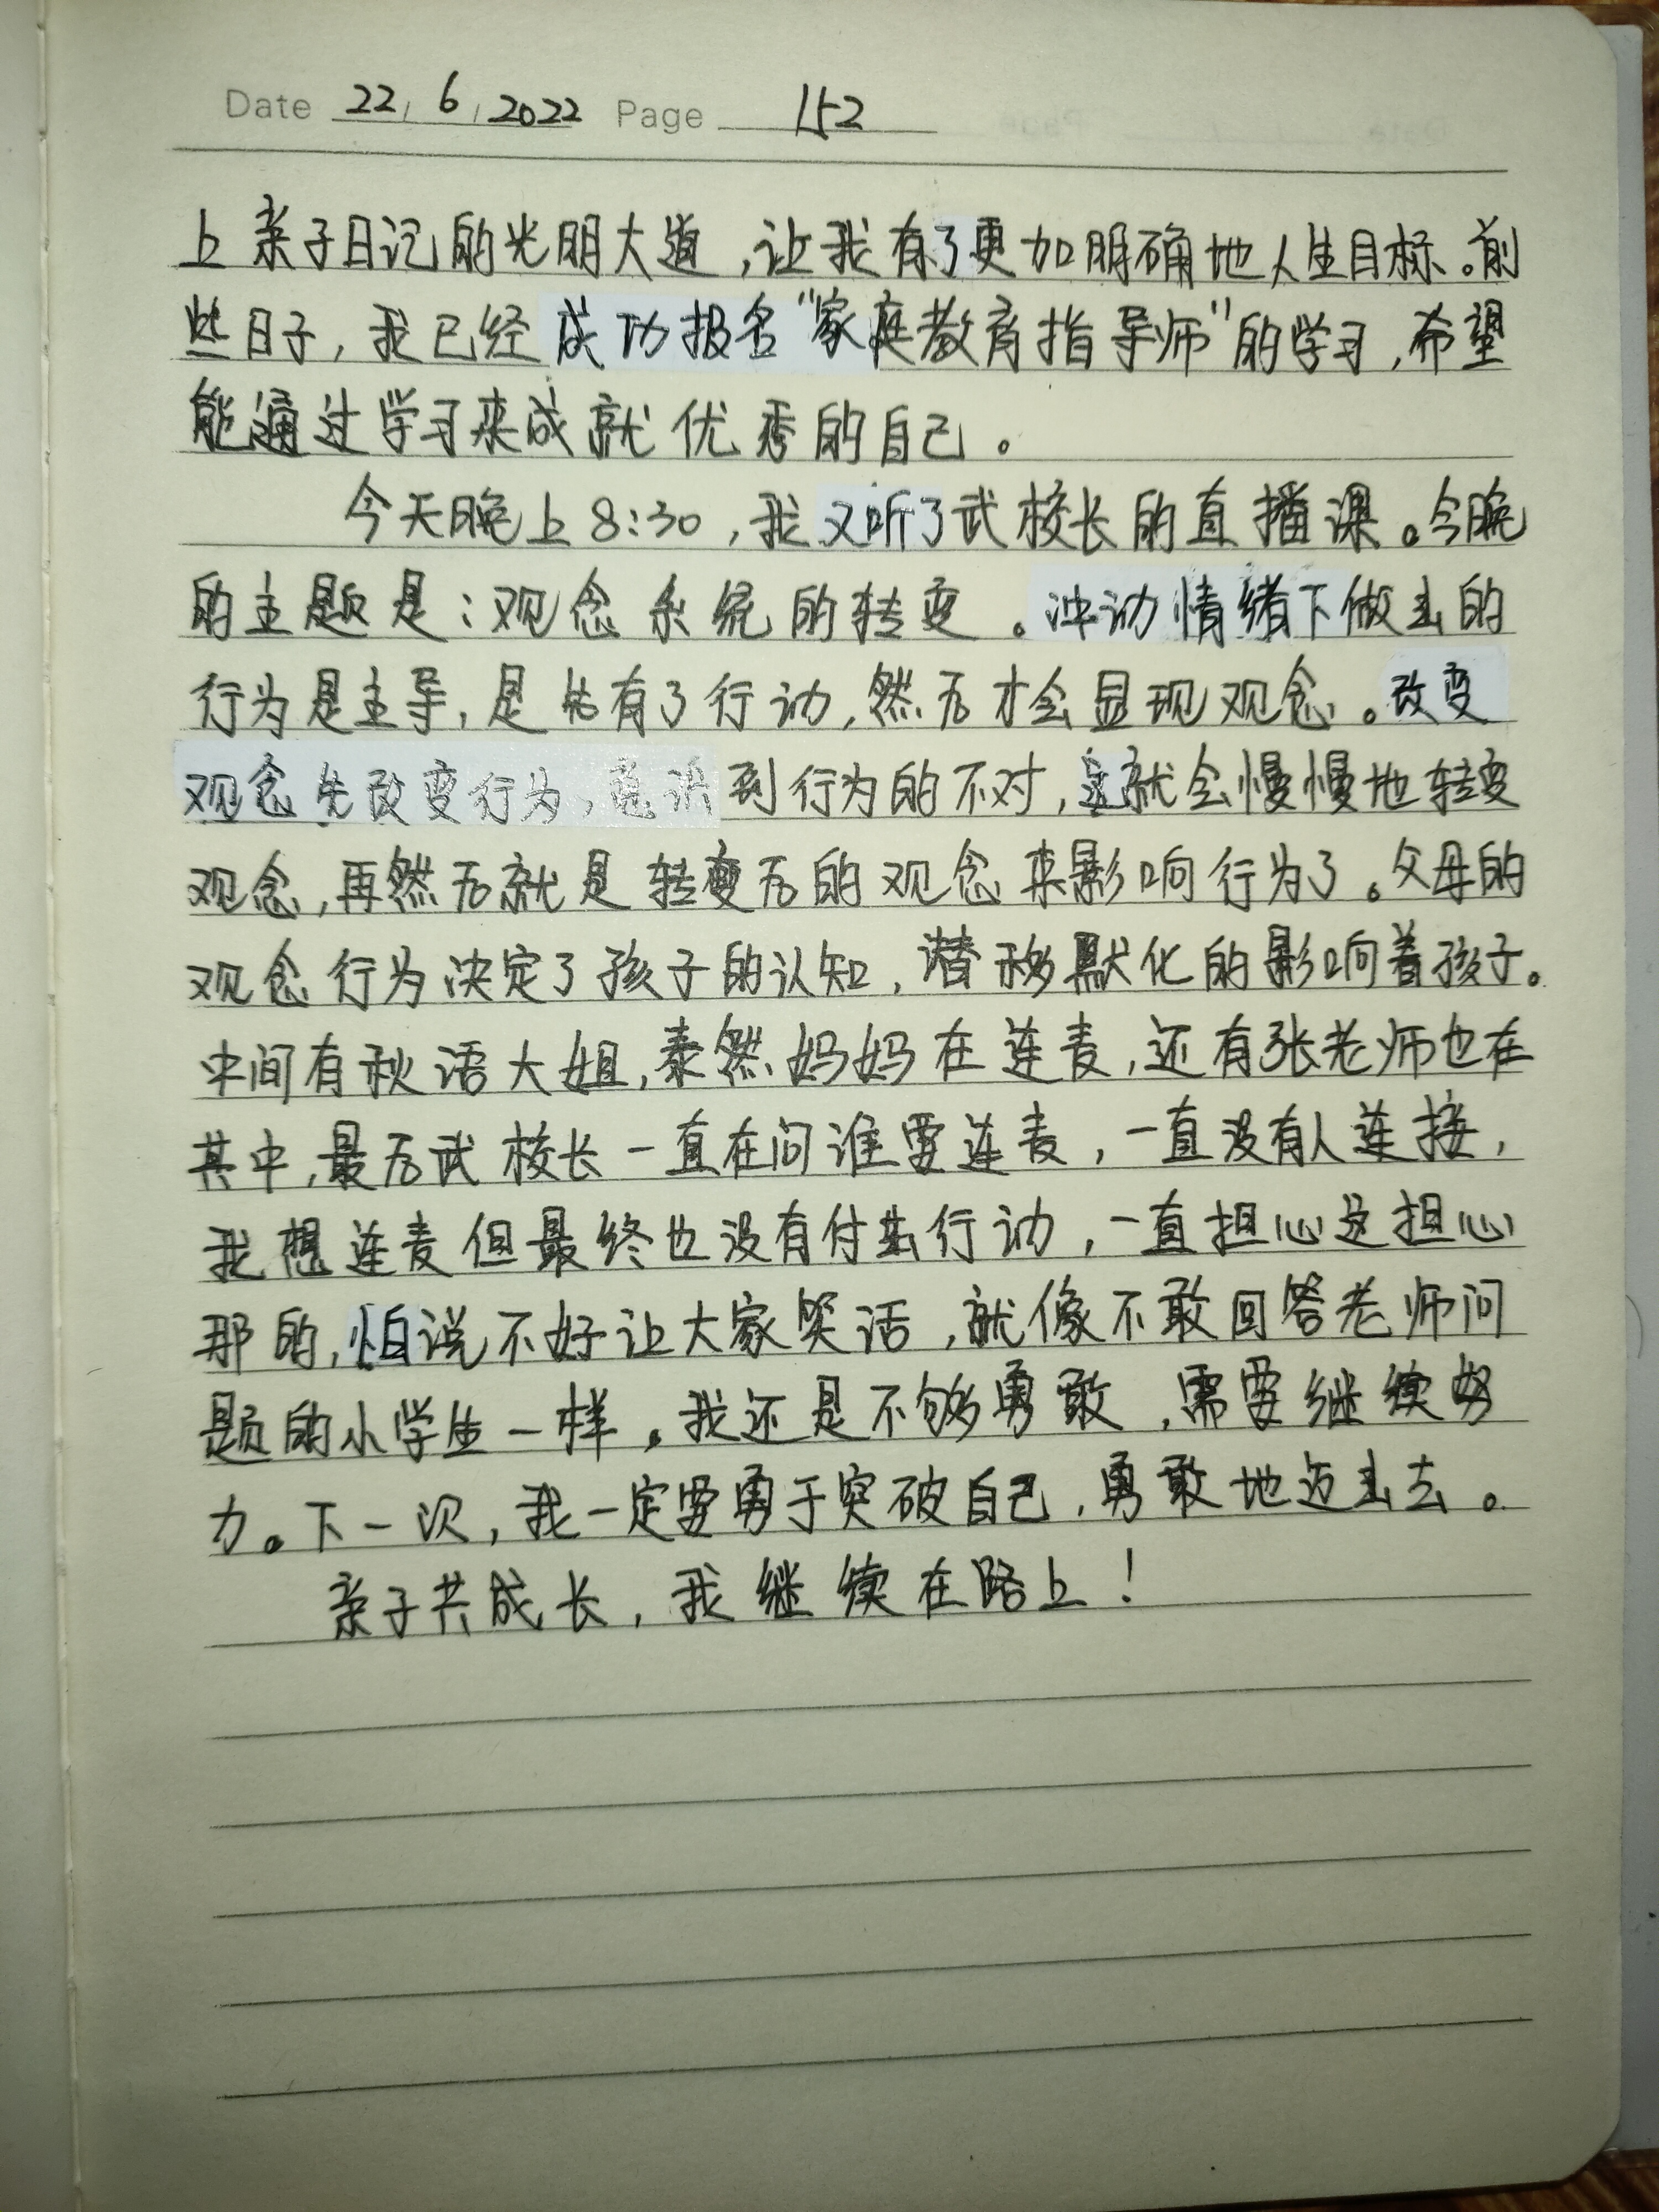 Date 22/6/2022 Page 152
上亲子日记的光明大道,让我有了更加明确地人生目标。前
些日子,我已经成功报名"家庭教育指导师"的学习,希望
能通过学习来成就优秀的自己。
今天晚上8:30,我又听了武校长的直播课。今晚
的主题是:观念系统的转变。冲动情绪下做出的
行为是主导,是先有了行动,然后才会显现观念。改变
观念先改变行为,意识到行为的不对,这就会慢慢地转变
观念,再然后就是转变后的观念来影响行为了。父母的
观念行为决定了孩子的认知,潜移默化的影响着孩子。
中间有秋语大姐,泰然妈妈在连麦,还有张老师也在
其中,最后武校长一直在问谁要连麦,一直没有人连接,
我想连麦但最终也没有付出行动,一直担心这担心
那的,怕说不好让大家笑话,就像不敢回答老师问
题的小学生一样。我还是不够勇敢,需要继续努
力。下一次,我一定要勇于突破自己,勇敢地迈出去。
亲子共成长,我继续在路上!